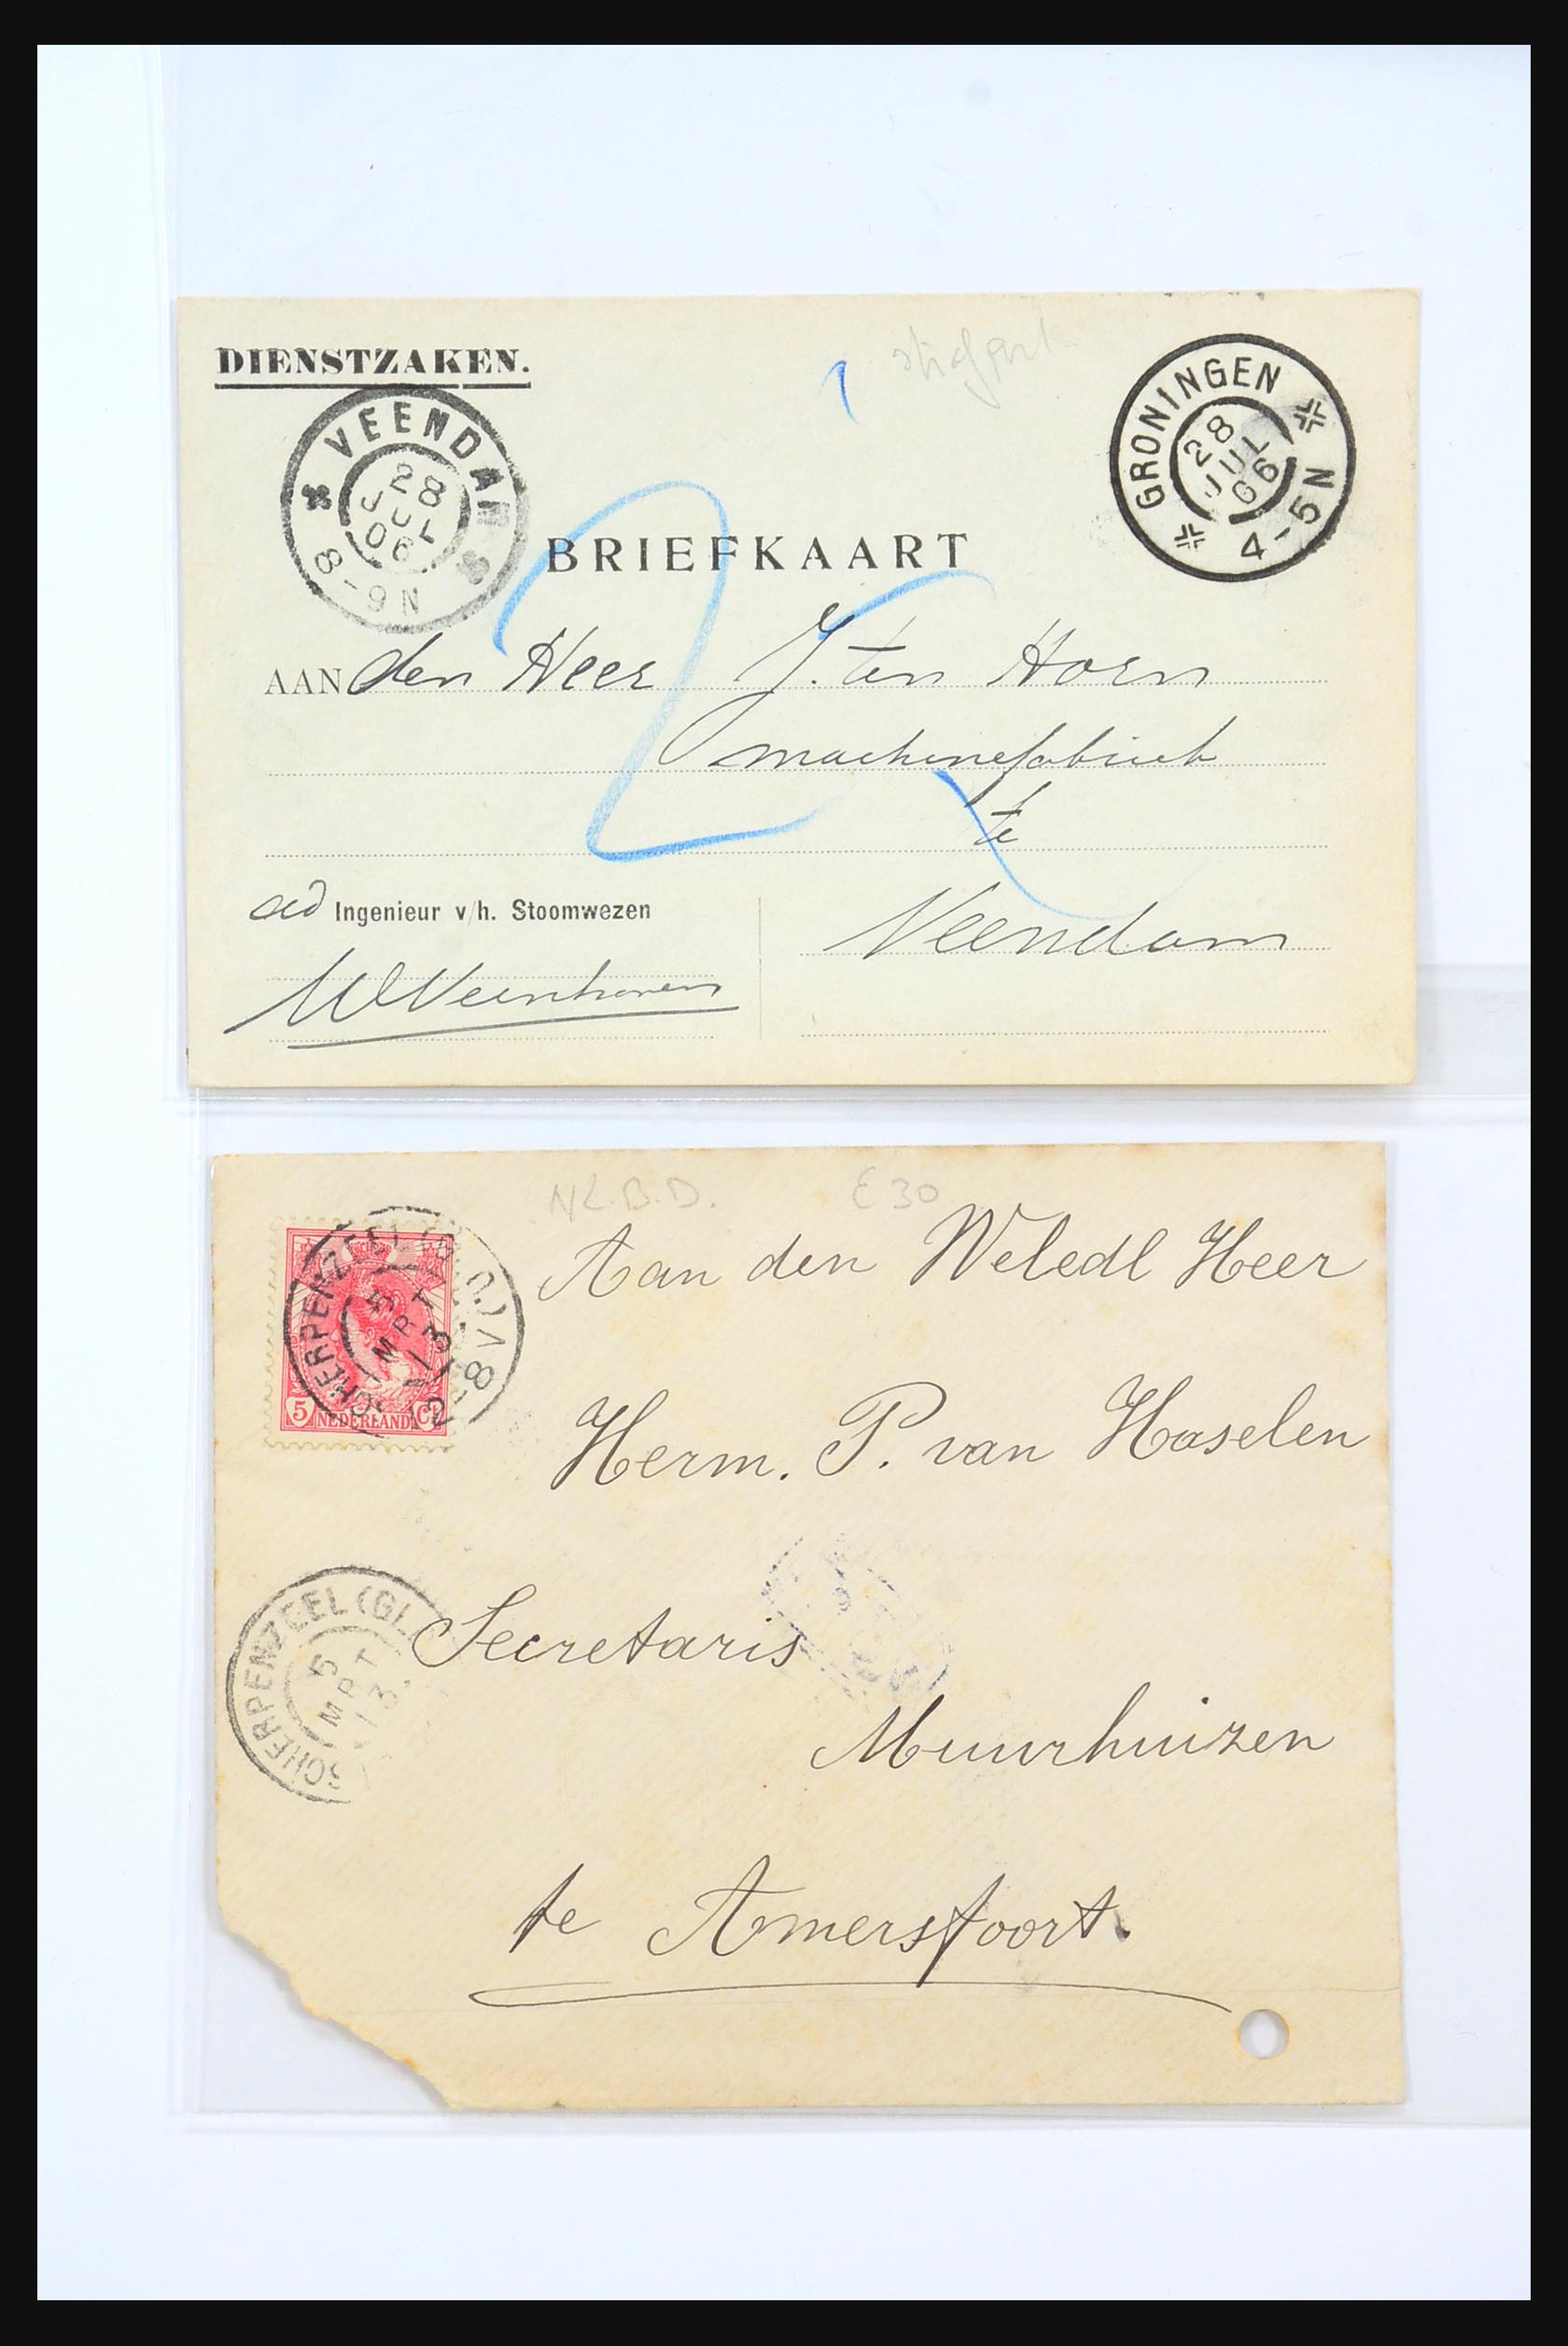 DIENSTZAKEN.
1
VEENDAM
28
JUL
06
8-9N
GRONINGEN
28
JUL
06
4-5N
BRIEFKAART
2
AAN den Heer J. ten Horn
machinefabriek
te
Veendam
Ingenieur v/h. Stoomwezen
NL.B.D. € 30
SCHERPENZEEL (GLD.)
5
MRT
13
12-8V
NEDERLAND
5 Ct
Aan den Weledl Heer
Herm. P. van Haselen
SCHERPENZEEL (GL
5
MRT
13
Secretaris
Muurhuizen
te Amersfoort.